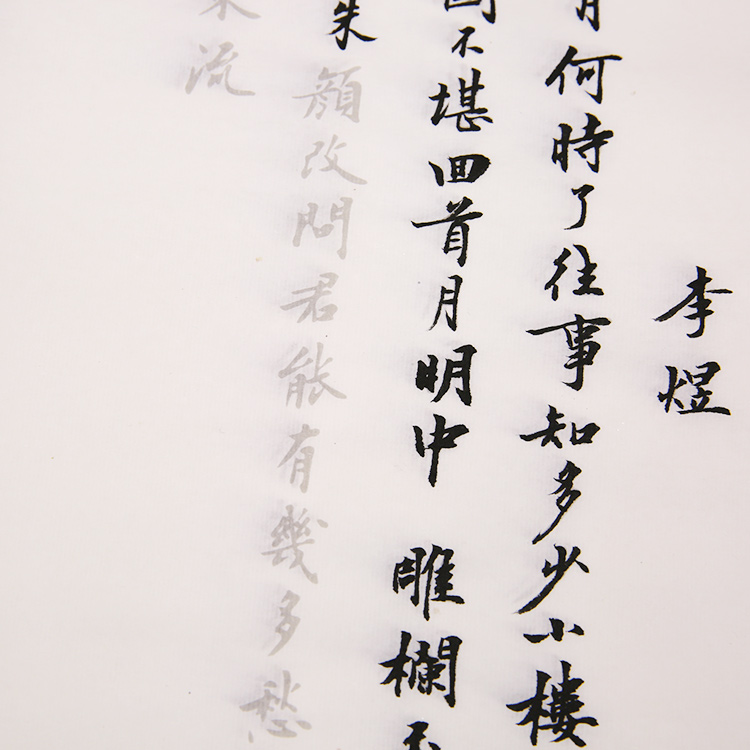 李煜
月何時了往事知多少小樓
國不堪回首月明中 雕欄玉
朱顏改問君能有幾多愁
東流